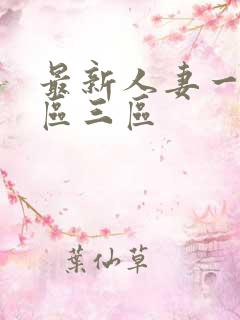 最新人妻一
區三區
葉仙草